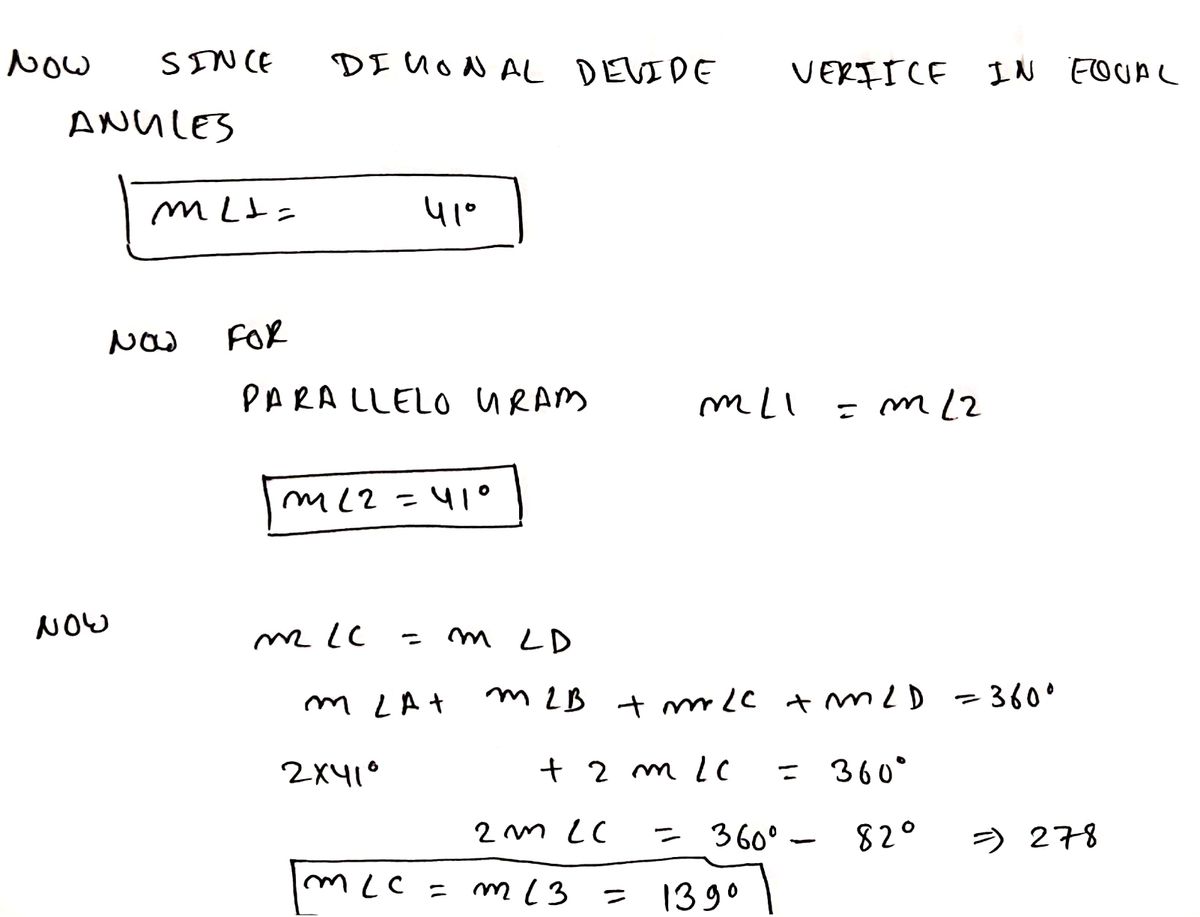 NOW SINCE DIGONAL DEVIDE VERTICE IN EQUAL
ANGLES
m∠1 = 41°
NOW FOR
PARALLELOGRAM m∠1 = m∠2
m∠2 = 41°
NOW m∠C = m∠D
m∠A + m∠B + m∠C + m∠D = 360°
2×41° + 2m∠C = 360°
2m∠C = 360° - 82° ⇒ 278
m∠C = m∠3 = 139°